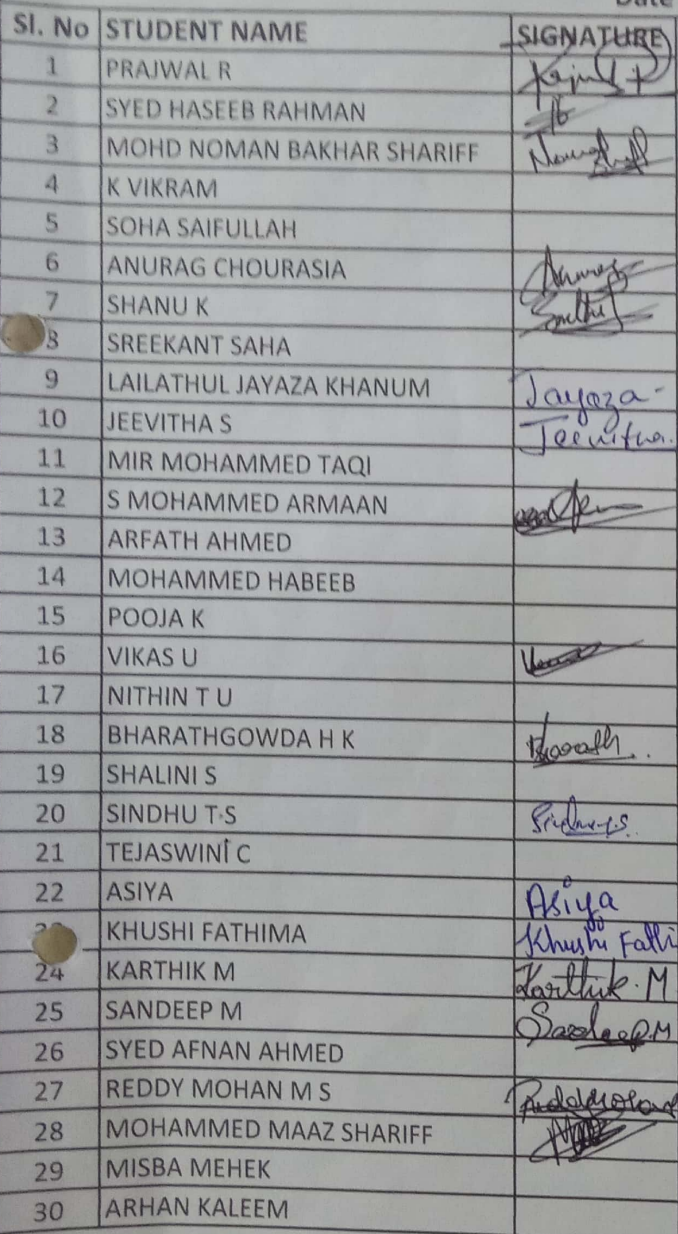 Date
Sl. No STUDENT NAME SIGNATURE
1 PRAJWAL R
2 SYED HASEEB RAHMAN
3 MOHD NOMAN BAKHAR SHARIFF
4 K VIKRAM
5 SOHA SAIFULLAH
6 ANURAG CHOURASIA
7 SHANU K
8 SREEKANT SAHA
9 LAILATHUL JAYAZA KHANUM Jayaza
10 JEEVITHA S Jeevitha.
11 MIR MOHAMMED TAQI
12 S MOHAMMED ARMAAN
13 ARFATH AHMED
14 MOHAMMED HABEEB
15 POOJA K
16 VIKAS U
17 NITHIN T U
18 BHARATHGOWDA H K Bharath.
19 SHALINI S
20 SINDHU T S
21 TEJASWINI C
22 ASIYA Asiya
KHUSHI FATHIMA Khushi Fathi
24 KARTHIK M Karthik. M
25 SANDEEP M Sandeep.M
26 SYED AFNAN AHMED
27 REDDY MOHAN M S
28 MOHAMMED MAAZ SHARIFF
29 MISBA MEHEK
30 ARHAN KALEEM